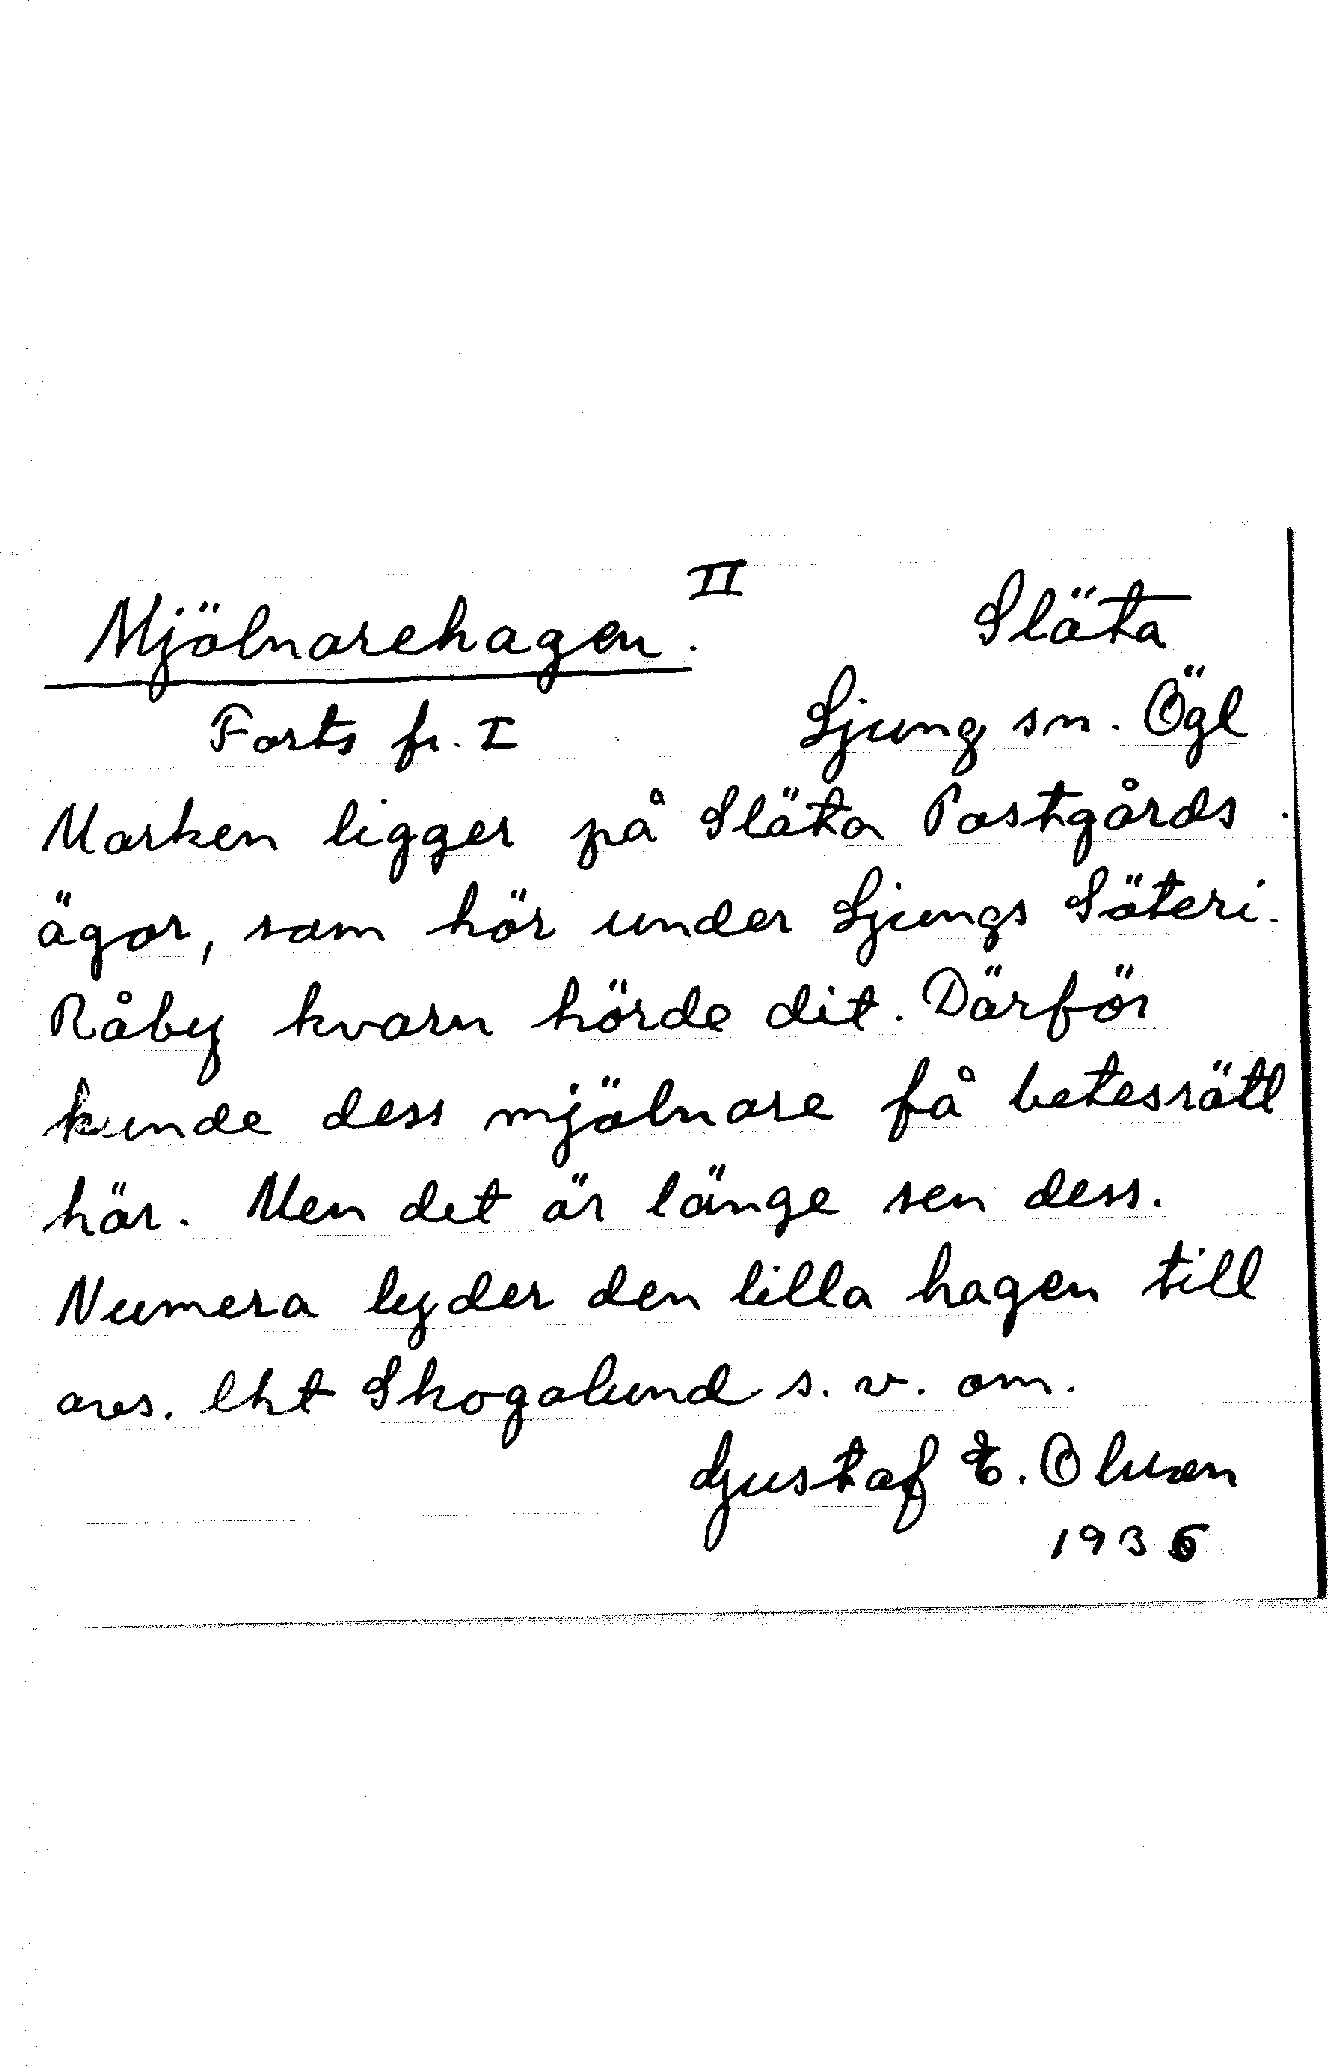 II
Mjölnarehagen. Släta
Forts fr. I Ljung sn. Ögl
Marken ligger på Släta Postgårds
ägor, som hör under Ljungs Säteri.
Råby kvarn hörde dit. Därför
kunde dess mjölnare få betesrätt
här. Men det är länge sen dess.
Numera lyder den lilla hagen till
avs. lht Skogalund s. v. om.
Gustaf E.
193